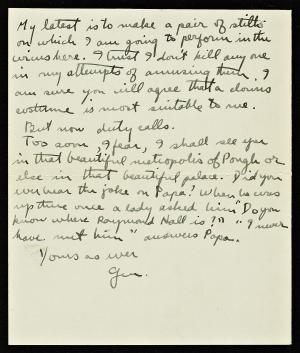 My latest is to make a pair of stilts
on which I am going to perform in the
circus here. I trust I don't kill any one
in my attempts of amusing them. I
am sure you will agree that a clowns
costume is most suitable to me.
But now duty calls.
Too soon, I fear, I shall see you
in that beautiful metropolis of Pough or
else in that beautiful palace. Did you
ever hear the joke on Papa? When he was
up there once a lady asked him "Do you
know where Raymond Hall is?" "I never
have met him" answers Papa.
Yours as ever